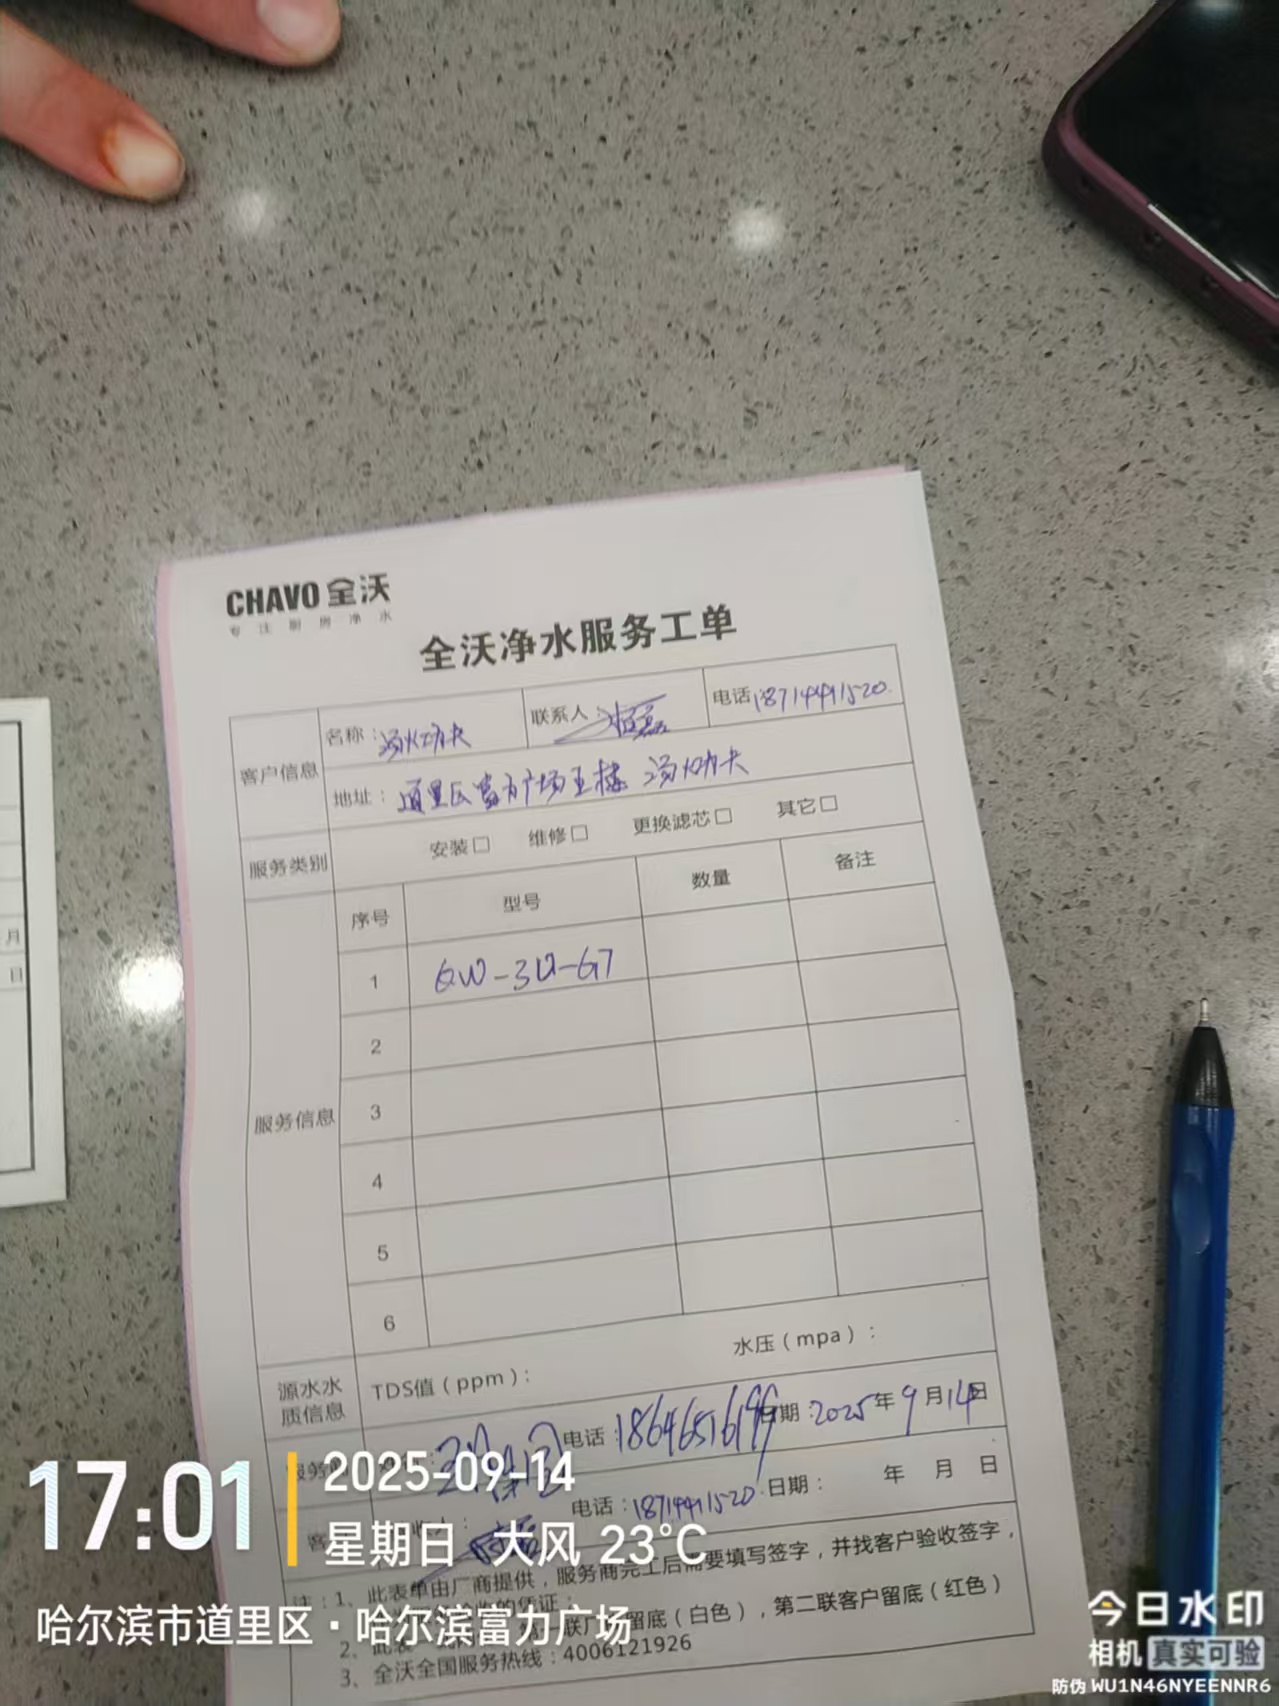 CHAVO 全沃
专注厨房净水
全沃净水服务工单
客户信息 名称：汤火功夫 联系人 电话 18714491520
地址：道里区富力广场五楼 汤火功夫
服务类别 安装□ 维修□ 更换滤芯□ 其它□
服务信息 序号 型号 数量 备注
1
2
3
4
5
6
源水水质信息 TDS值（ppm）： 水压（mpa）：
电话：18646516199 日期：2025年9月14日
电话：18714491520 日期： 年 月 日
注：1、此表单由厂商提供，服务商完工后需要填写签字，并找客户验收签字，
的凭证；
2、此表一 联厂 留底（白色），第二联客户留底（红色）
3、全沃全国服务热线：4006121926
月
日
17:01
2025-09-14
星期日 大风 23°C
哈尔滨市道里区·哈尔滨富力广场
今日水印
相机 真实可验
防伪 WU1N46NYEENNR6